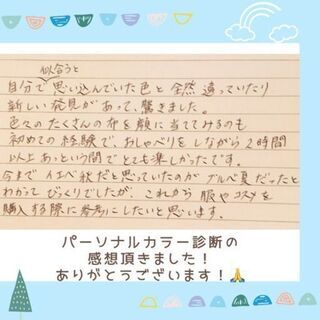 似合うと
自分で思い込んでいた色と全然違っていたり
新しい発見があって、驚きました。
色々のたくさんの布を顔に当ててみるのも
初めての経験で、おしゃべりをしながら2時間
以上あっという間でとても楽しかったです。
今までイエベ秋だと思っていたのがブルベ夏だったと
わかってびっくりでしたが、これから服やコスメを
購入する際に参考にしたいと思います。
パーソナルカラー診断の
感想頂きました!
ありがとうございます!🙏